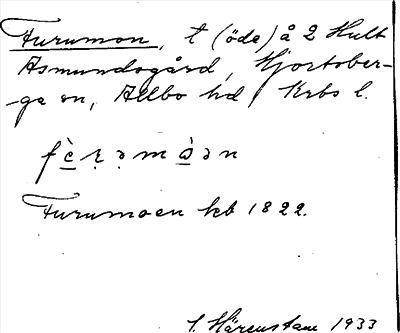 Furumon, t (öde) å 2 Hult
Asmundsgård, Hjortsber-
ga sn, Allbo hd, Krbs l.
fè̱ṛəmò̱ən
Furumoen kb 1822.
Härenstam 1933